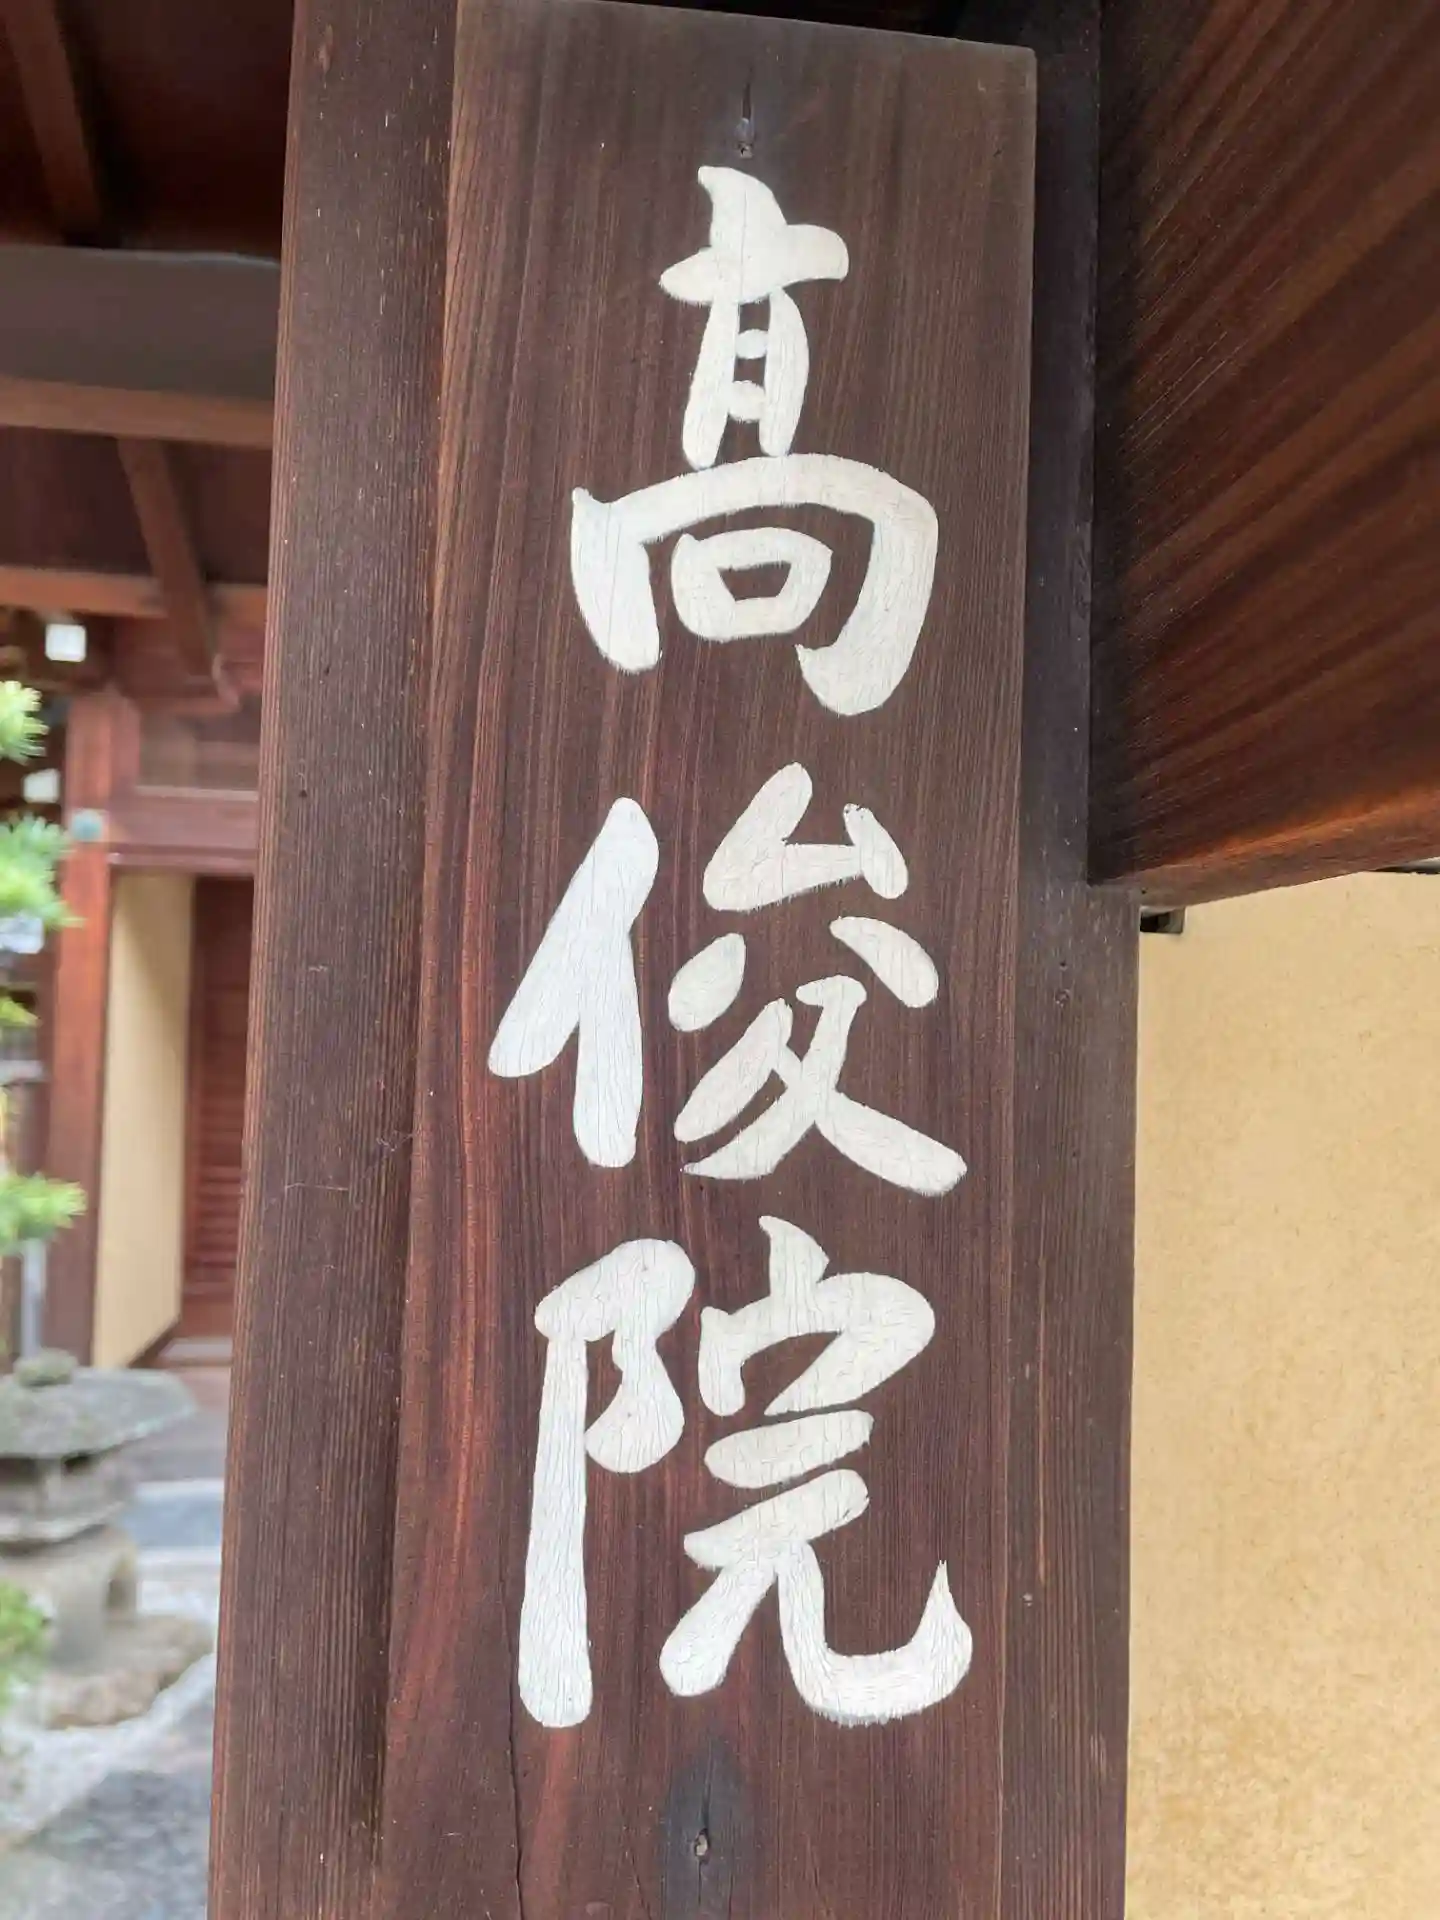 髙俊院